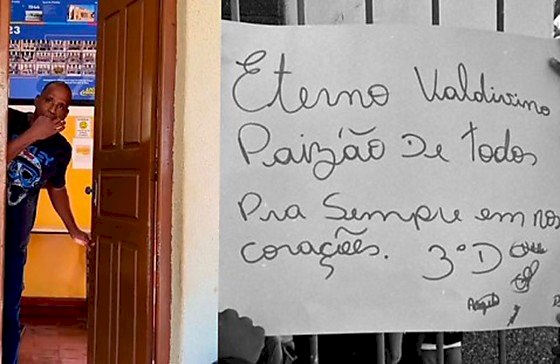 1944
23
Eterno Valdivino
Paizão De todos
Pra Sempre em nos
corações.
3ºD